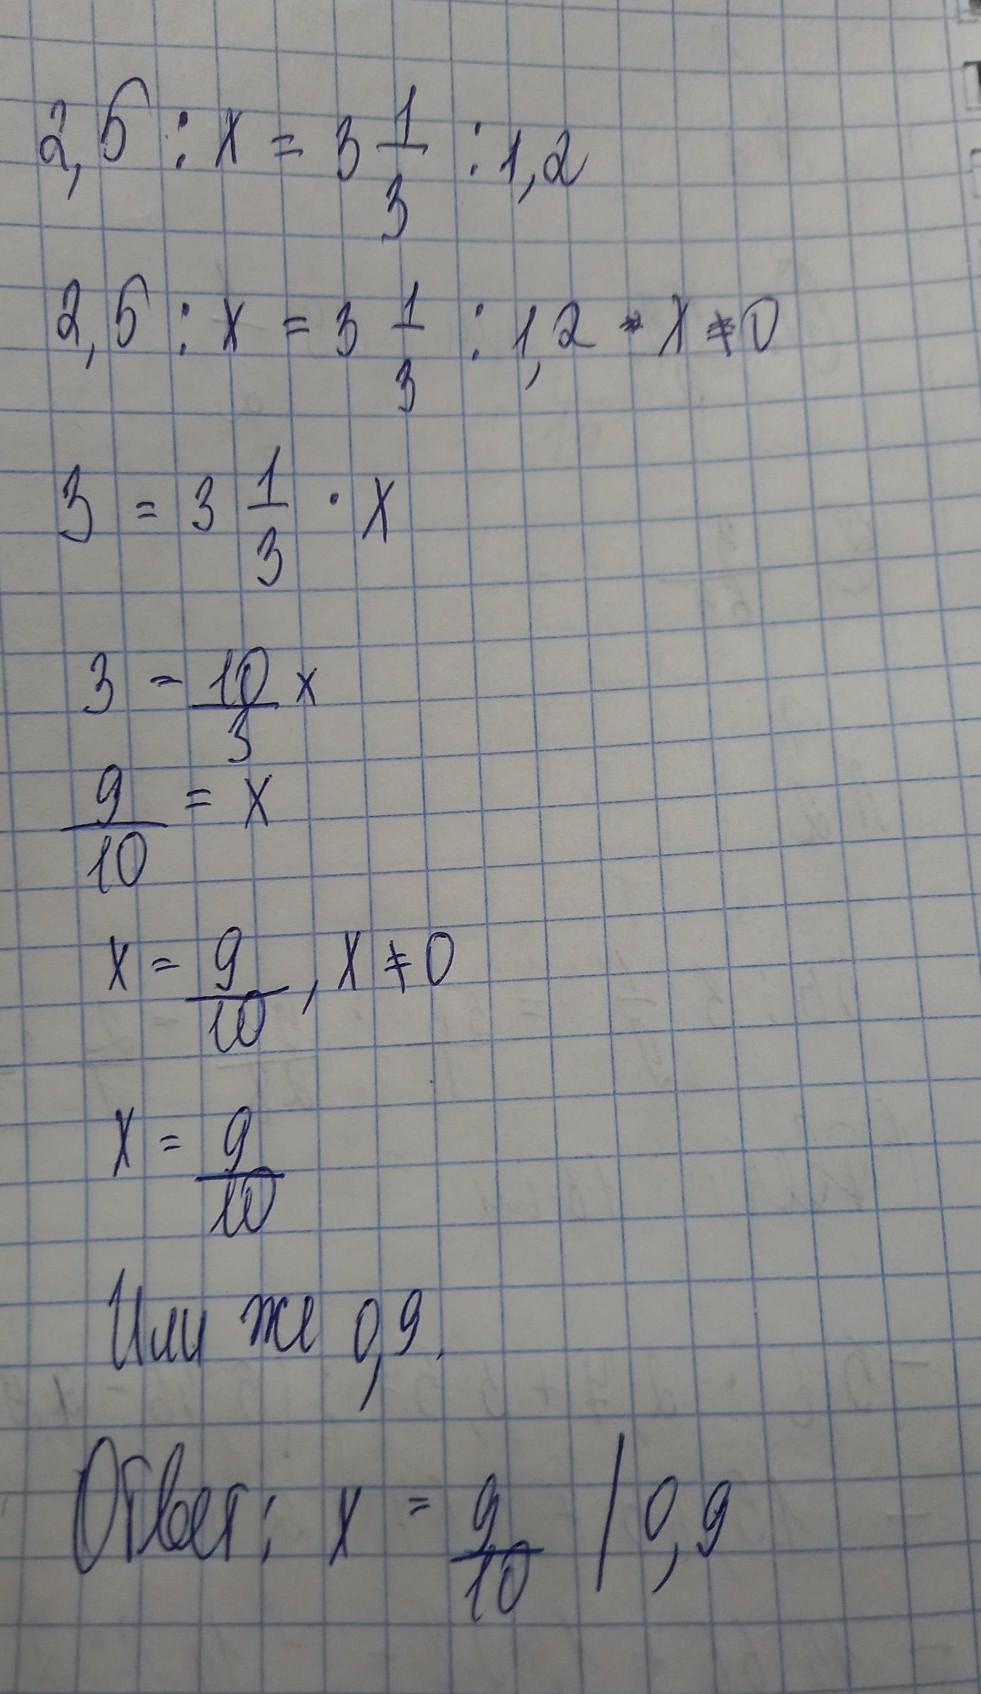 2,5 : x = 3 1/3 : 1,2
2,5 : x = 3 1/3 : 1,2 x ≠ 0
3 = 3 1/3 · x
3 = 10/3 x
9/10 = x
x = 9/10, x ≠ 0
x = 9/10
Или же 0,9.
Ответ: x = 9/10 / 0,9